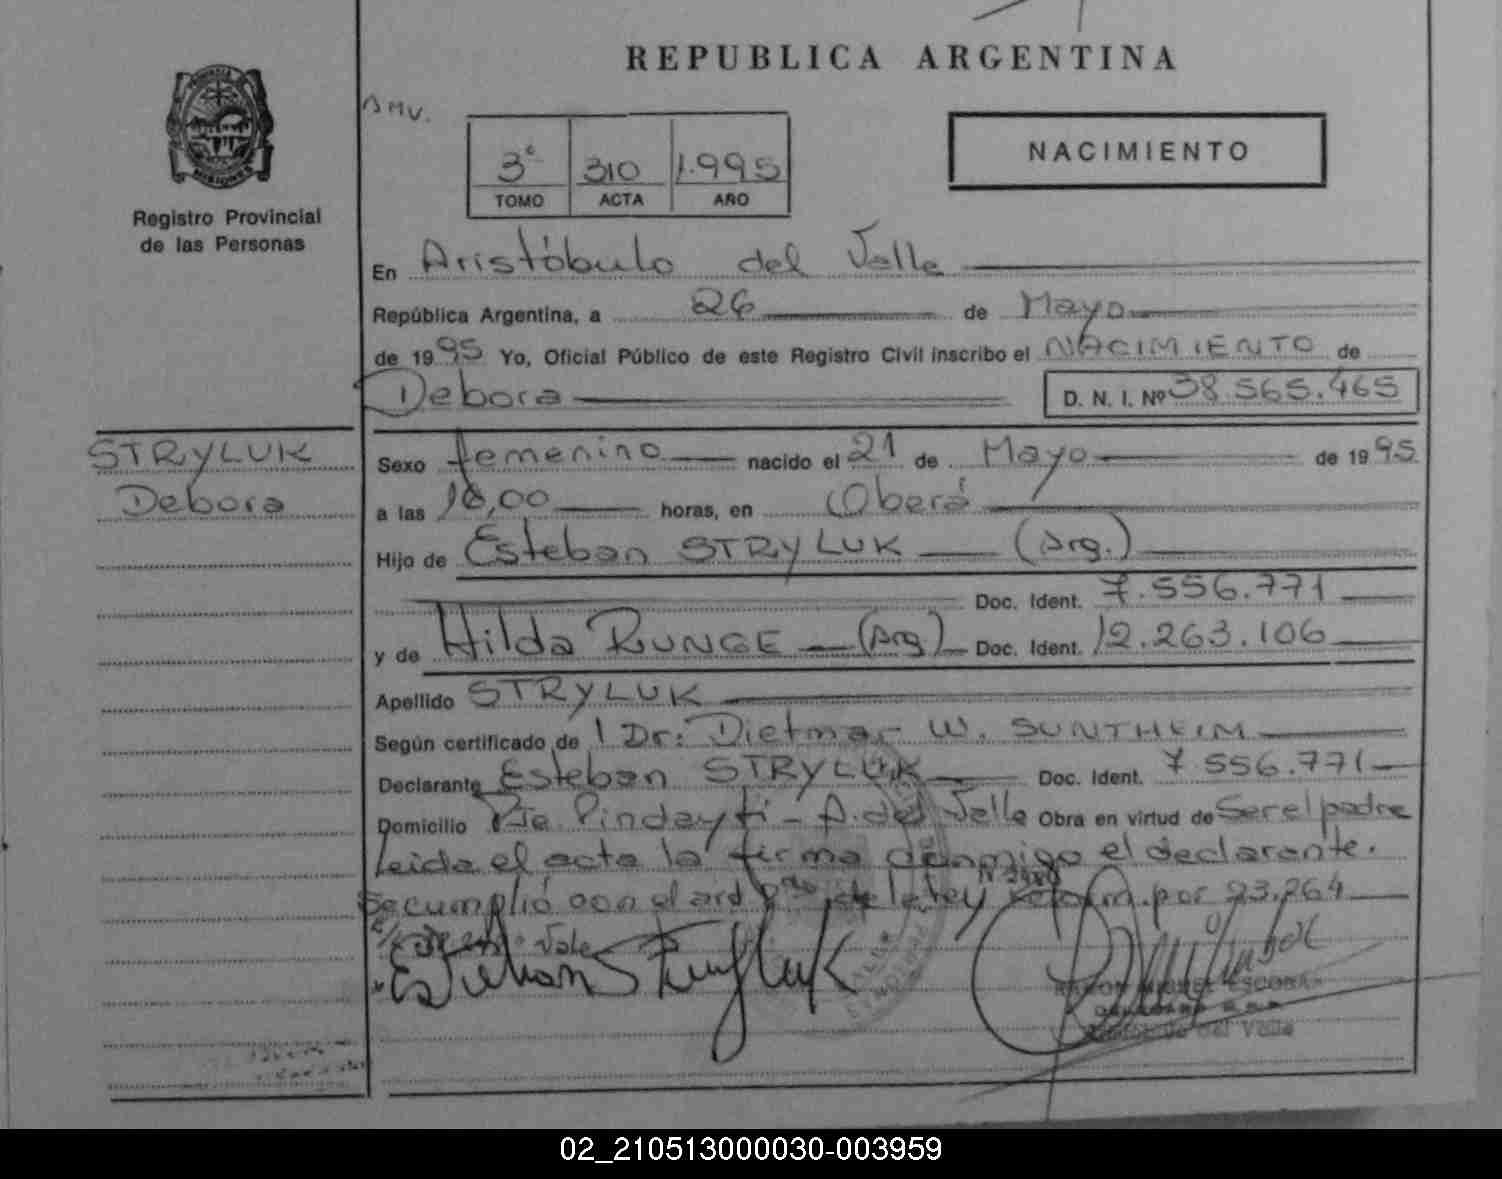 REPUBLICA ARGENTINA
PROVINCIA DE
MISIONES
Registro Provincial
de las Personas
3° 310 1.995
TOMO ACTA AÑO
NACIMIENTO
En Aristóbulo del Valle
República Argentina, a 26 de Mayo
de 1995 Yo, Oficial Público de este Registro Civil inscribo el NACIMIENTO de
Debora D. N. I. Nº 38.565.465
STRYLUK
Debora
Sexo femenino nacido el 21 de Mayo de 1995
a las horas, en Oberá
Hijo de Esteban STRYLUK (Arg.)
Doc. Ident. 7.556.771
y de Hilda RUNGE (Arg) Doc. Ident. 12.263.106
Apellido STRYLUK
Según certificado de Dr. Dietmar W. SUNTHEIM
Declarante Esteban STRYLUK Doc. Ident. 7.556.771
Domicilio Pindaytí - A. del Valle Obra en virtud de Ser el padre
Leída el acta la firma conmigo el declarante.
Se cumplió con el art de la ley reform. por 23.264
Vale
Esteban Stryluk
RAMON MIGUEL ESCOBAR
del Valle
02_210513000030-003959